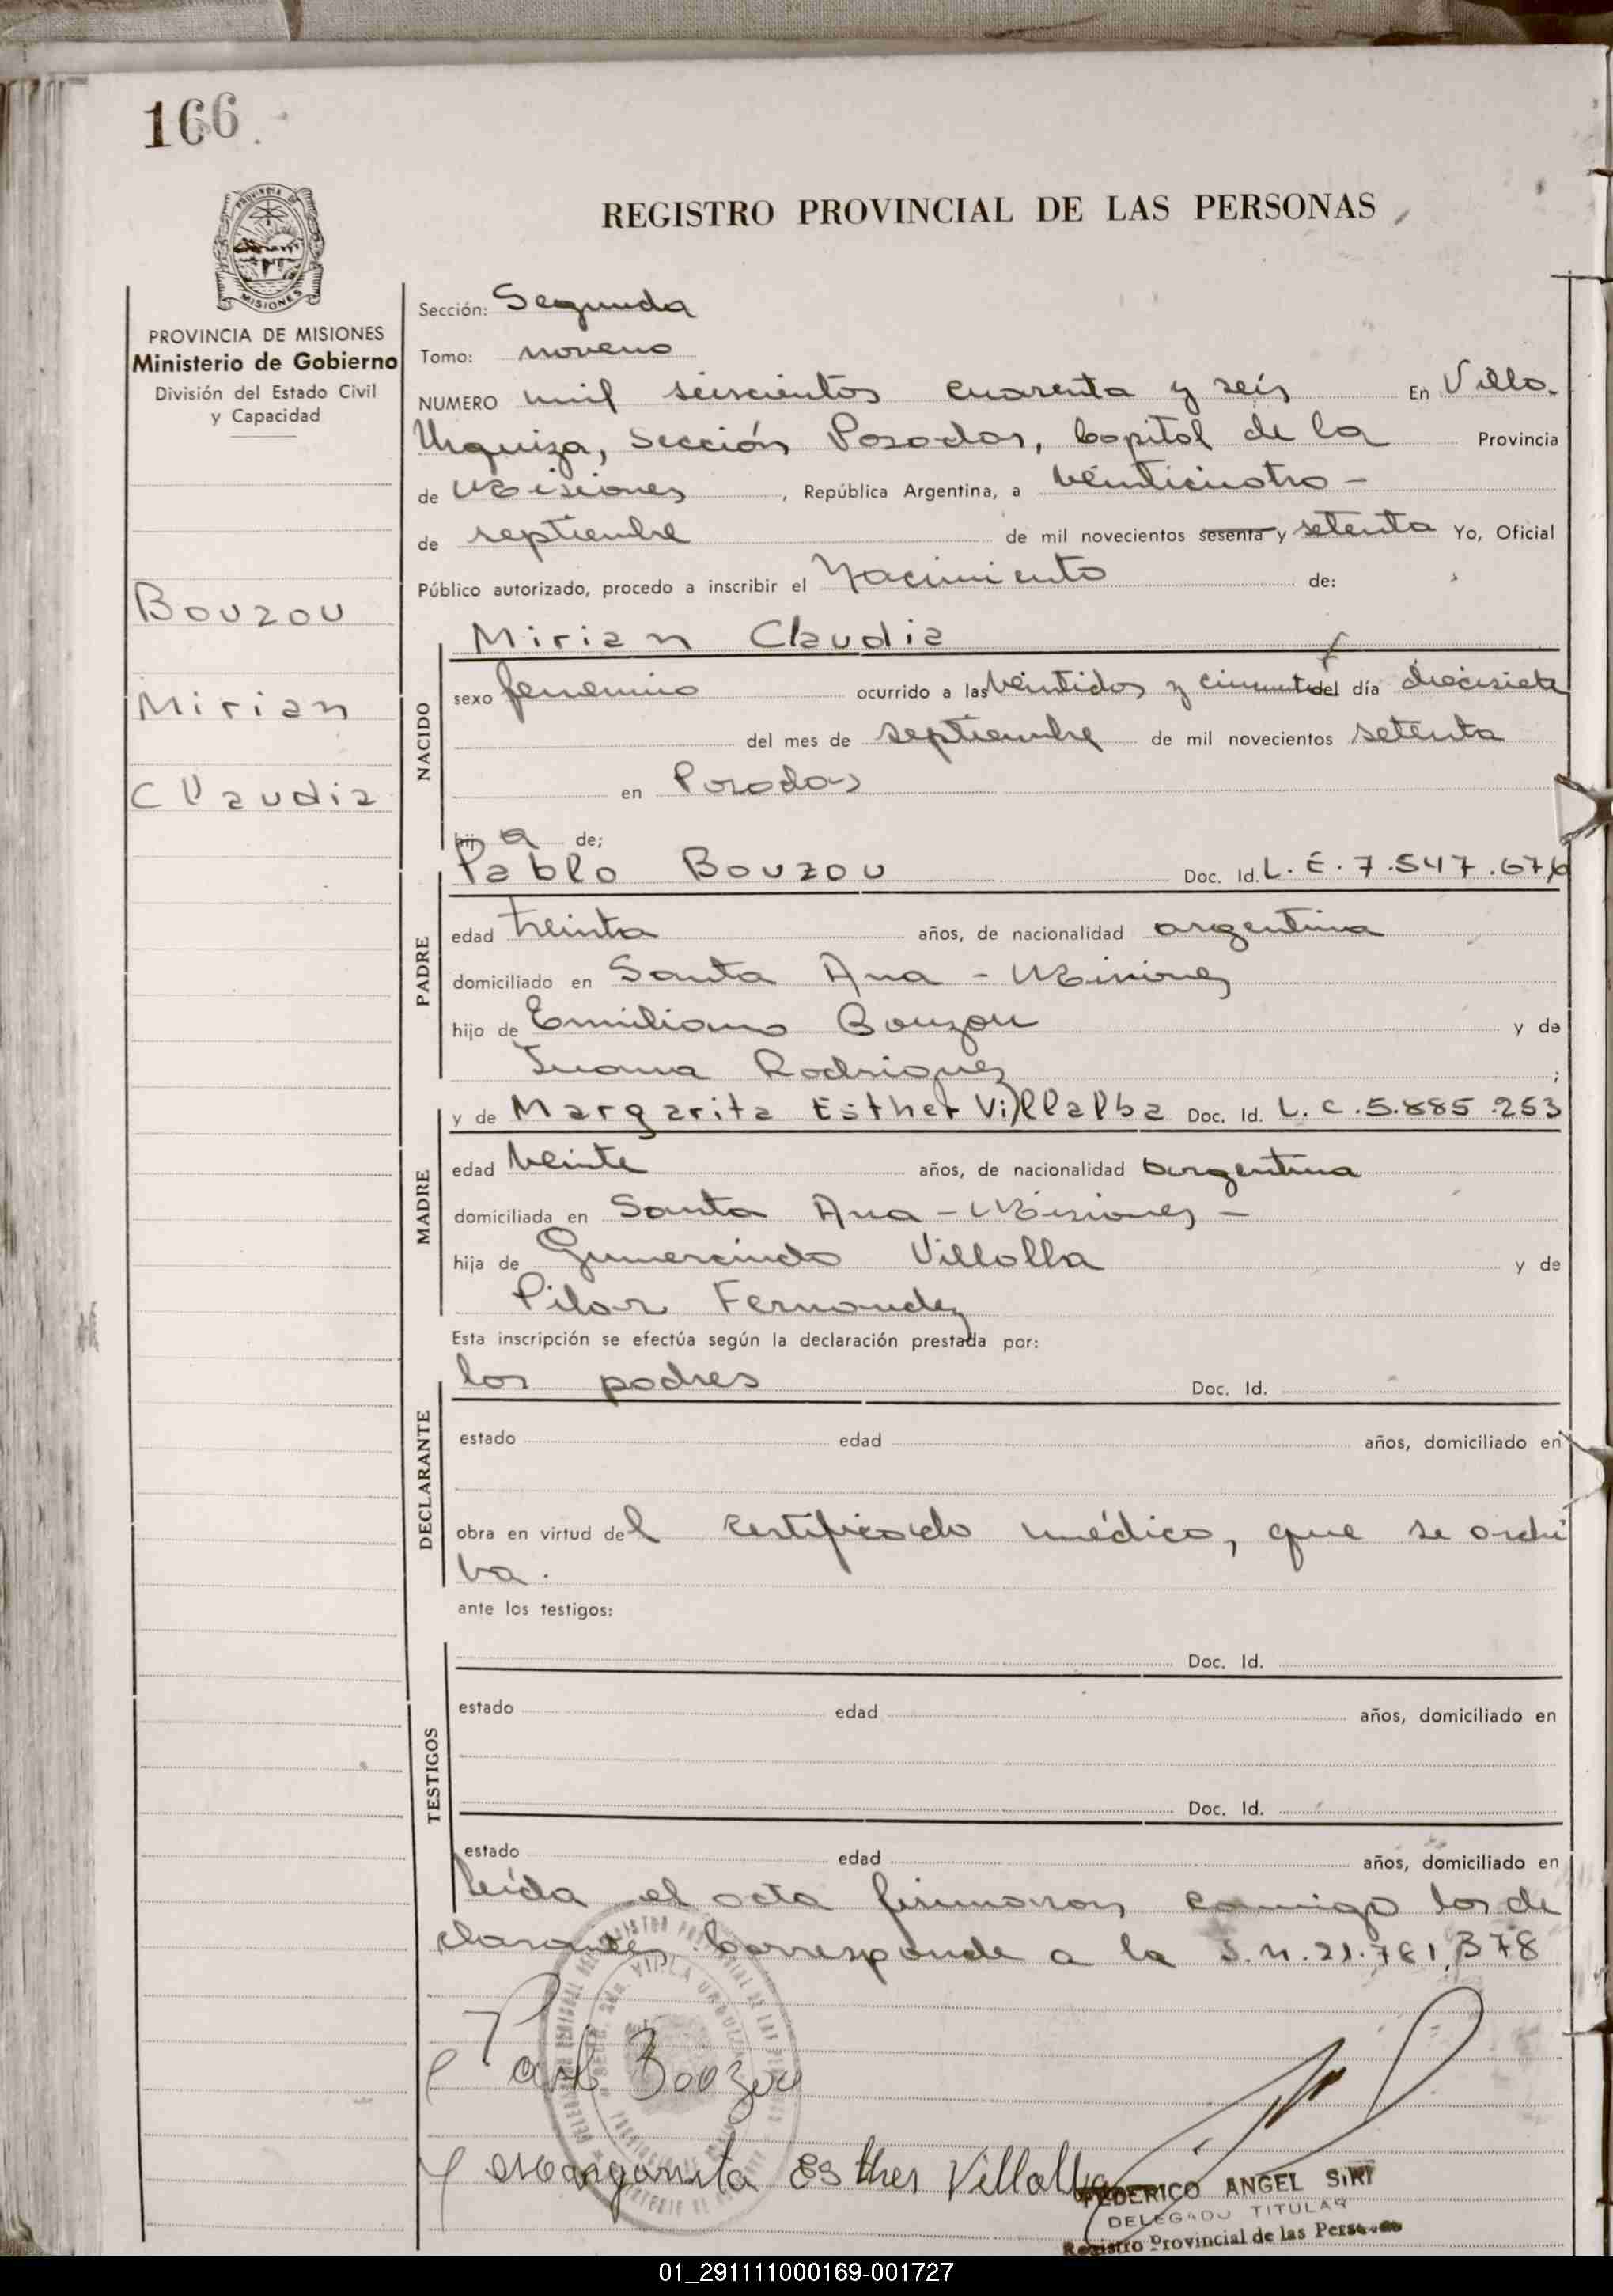 166
REGISTRO PROVINCIAL DE LAS PERSONAS
MISIONES
PROVINCIA DE MISIONES
Ministerio de Gobierno
División del Estado Civil
y Capacidad
Bouzou
Mirian
Claudia
Sección: Segunda
Tomo: noveno
NUMERO mil seiscientos cuarenta y seis En Villa
Urquiza, Sección Posadas, Capital de la Provincia
de Misiones, República Argentina, a veinticuatro -
de septiembre de mil novecientos sesenta y setenta Yo, Oficial
Público autorizado, procedo a inscribir el Nacimiento de:
NACIDO
Mirian Claudia
sexo femenino ocurrido a las veintidos y del día diecisiete
del mes de septiembre de mil novecientos setenta
en Posadas
hij a de;
PADRE
Pablo Bouzou Doc. Id. L. E. 7.547.676
edad treinta años, de nacionalidad argentina
domiciliado en Santa Ana - Misiones
hijo de Emiliano Bouzou y de
Juana Rodriguez ;
MADRE
y de Margarita Esther Villalba Doc. Id. L. C. 5.885.253
edad veinte años, de nacionalidad argentina
domiciliada en Santa Ana - Misiones -
hija de Gumercindo Villalba y de
Pilar Fernandez
Esta inscripción se efectúa según la declaración prestada por:
DECLARANTE
los padres Doc. Id.
estado edad años, domiciliado en
obra en virtud del certificado médico, que se archi
va.
ante los testigos:
TESTIGOS
Doc. Id.
estado edad años, domiciliado en
Doc. Id.
estado edad años, domiciliado en
leída el acta firmaron conmigo los de
clarantes. Corresponde a la 21.781.378
Pablo Bouzou
Margarita Esther Villalba
FEDERICO ANGEL SIRI
DELEGADO TITULAR
Registro Provincial de las Personas
01_291111000169-001727